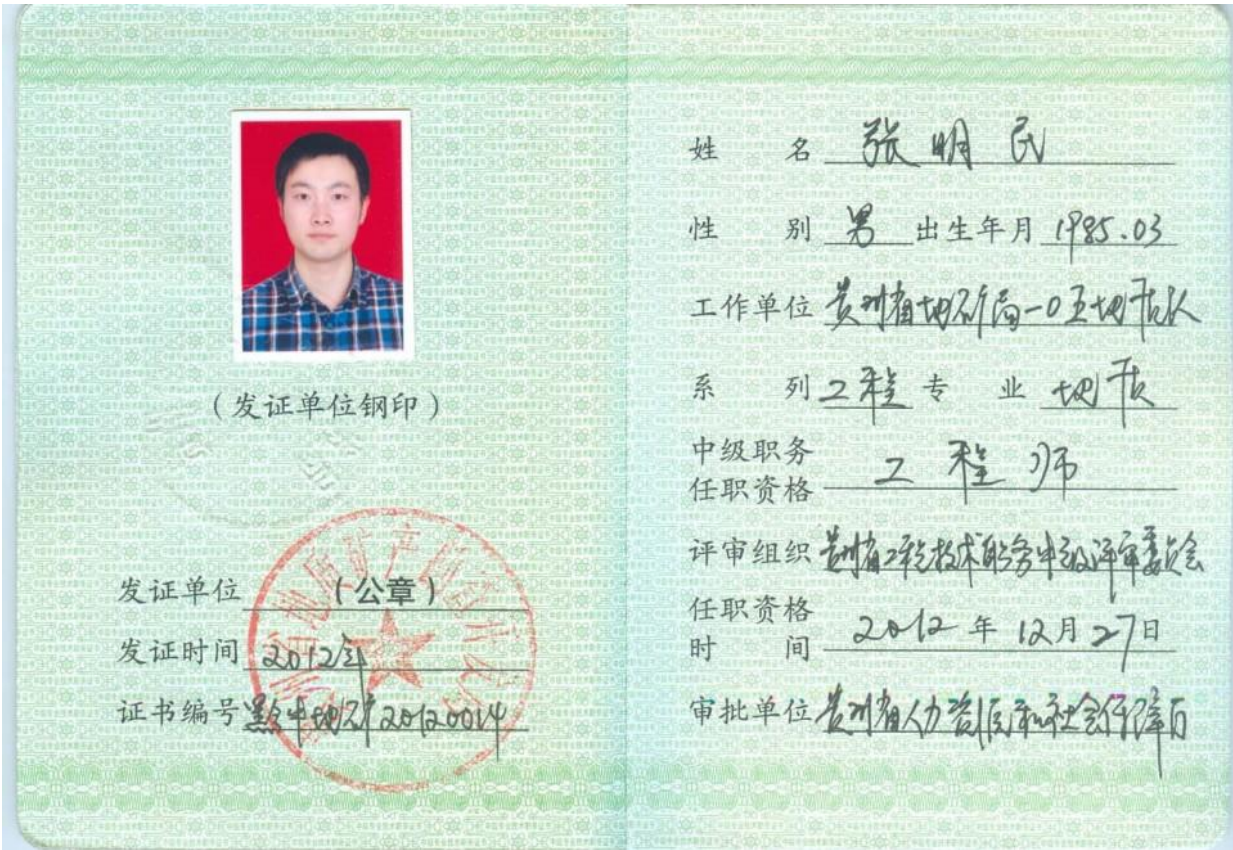 (发证单位钢印)
发证单位 (公章)
发证时间 2012年
证书编号 黔中地矿20120014
姓 名 张明民
性 别 男 出生年月 1985.03
工作单位 贵州省地矿局一0五地质队
系 列 工程 专 业 地质
中级职务
任职资格 工程师
评审组织 贵州省工程技术职务中级评审委员会
任职资格
时 间 2012 年 12 月 27 日
审批单位 贵州省人力资源和社会保障厅